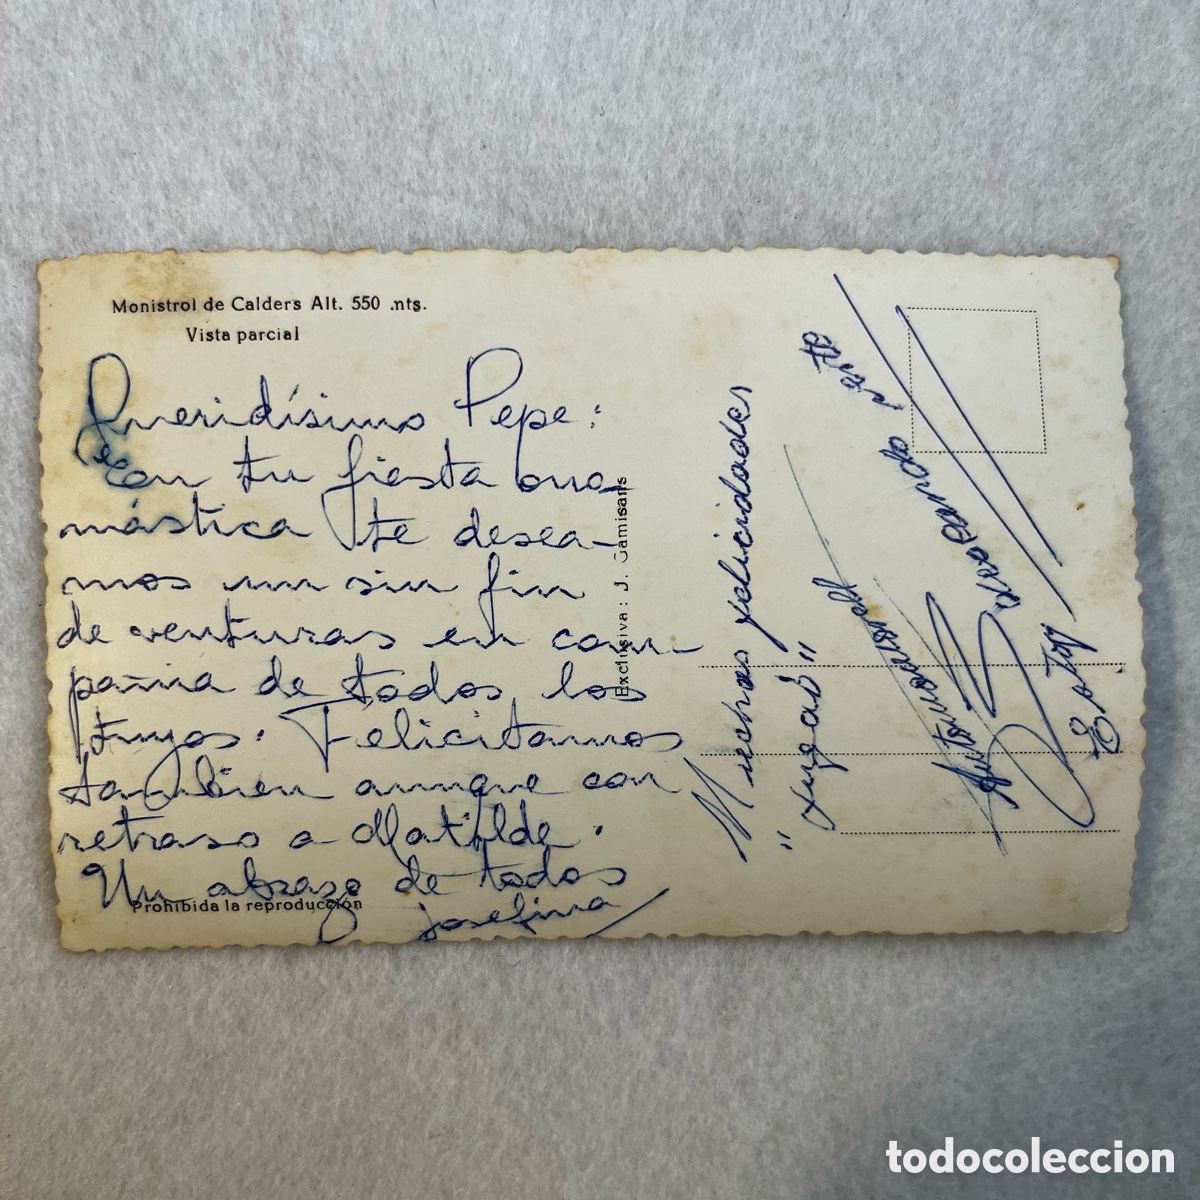 Monistrol de Calders Alt. 550 mts.
Vista parcial
Queridísimo Pepe:
en tu fiesta ono-
mástica te desea-
mos un sin fin
de venturas en com-
pañia de todos los
tuyos. Felicitamos
también aunque con
retraso a Matilde.
Un abrazo de todos
Josefina
Prohibida la reproducción
Exclusiva: J. Gamisans
Muchas felicidades
todocoleccion